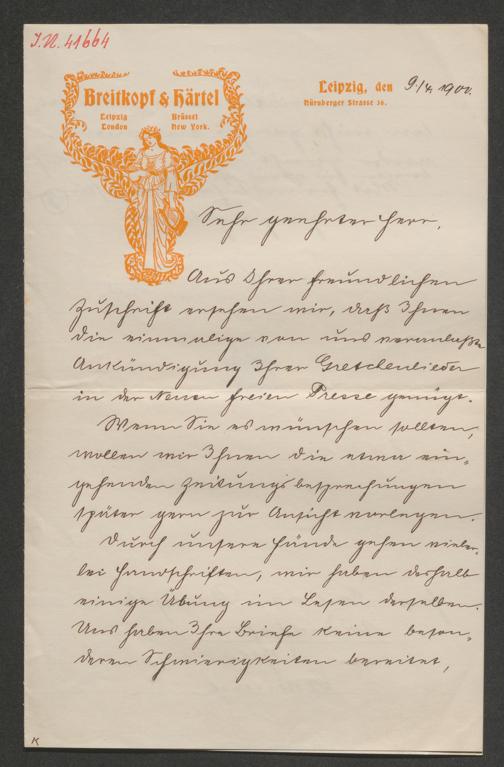 J.N. 41664
Breitkopf & Härtel
Leipzig Brüssel
London New York.
Leipzig, den 9./4. 1900.
Nürnberger Strasse 36.
Sehr geehrter Herr,
Aus Ihrer freundlichen
Zuschrift ersehen wir, daß Ihnen
die einmalige von uns veranlaßte
Ankündigung Ihrer Gretchenlieder
in der Neuen freien Presse genügt.
Wenn Sie es wünschen sollten,
wollen wir Ihnen die etwa ein-
gehenden Zeitungsbesprechungen
später gern zur Ansicht vorlegen.
Durch unsere Hände gehen vieler-
lei Handschriften, wir haben deshalb
einige Übung im Lesen derselben.
Uns haben Ihre Briefe keine beson-
deren Schwierigkeiten bereitet,
K